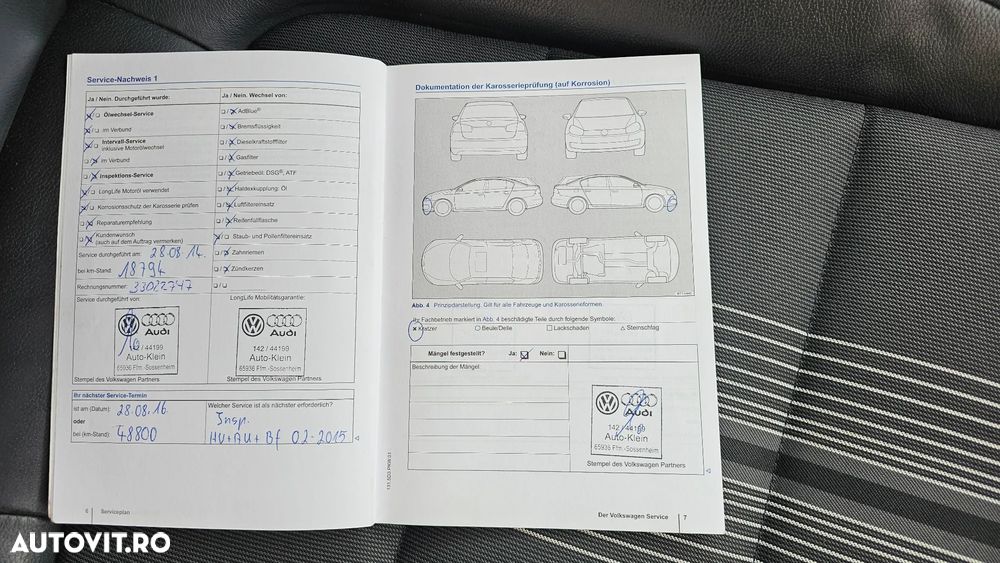 Service-Nachweis 1
Ja / Nein. Durchgeführt wurde:
Ölwechsel-Service
im Verbund
Intervall-Service
inklusive Motorölwechsel
im Verbund
Inspektions-Service
LongLife Motoröl verwendet
Korrosionsschutz der Karosserie prüfen
Reparaturempfehlung
Kundenwunsch
(auch auf dem Auftrag vermerken)
Service durchgeführt am: 28.08.14.
bei km-Stand: 18794
Rechnungsnummer: 33022747
Service durchgeführt von:
Audi
142 / 44199
Auto-Klein
65936 Ffm.-Sossenheim
Stempel des Volkswagen Partners
Ja / Nein. Wechsel von:
AdBlue®
Bremsflüssigkeit
Dieselkraftstofffilter
Gasfilter
Getriebeöl: DSG®, ATF
Haldexkupplung: Öl
Luftfiltereinsatz
Reifenfüllflasche
Staub- und Pollenfiltereinsatz
Zahnriemen
Zündkerzen
LongLife Mobilitätsgarantie:
Audi
142 / 44199
Auto-Klein
65936 Ffm.-Sossenheim
Stempel des Volkswagen Partners
Ihr nächster Service-Termin
ist am (Datum): 28.08.16.
oder
bei (km-Stand): 48800
Welcher Service ist als nächster erforderlich?
Insp.
HU+AU+Bf 02-2015
6 Serviceplan
Dokumentation der Karosserieprüfung (auf Korrosion)
Abb. 4 Prinzipdarstellung. Gilt für alle Fahrzeuge und Karosserieformen.
Ihr Fachbetrieb markiert in Abb. 4 beschädigte Teile durch folgende Symbole:
× Kratzer O Beule/Delle □ Lackschaden △ Steinschlag
Mängel festgestellt? Ja: Nein:
Beschreibung der Mängel:
Audi
142 / 44199
Auto-Klein
65936 Ffm.-Sossenheim
Stempel des Volkswagen Partners
Der Volkswagen Service 7
AUTOVIT.RO